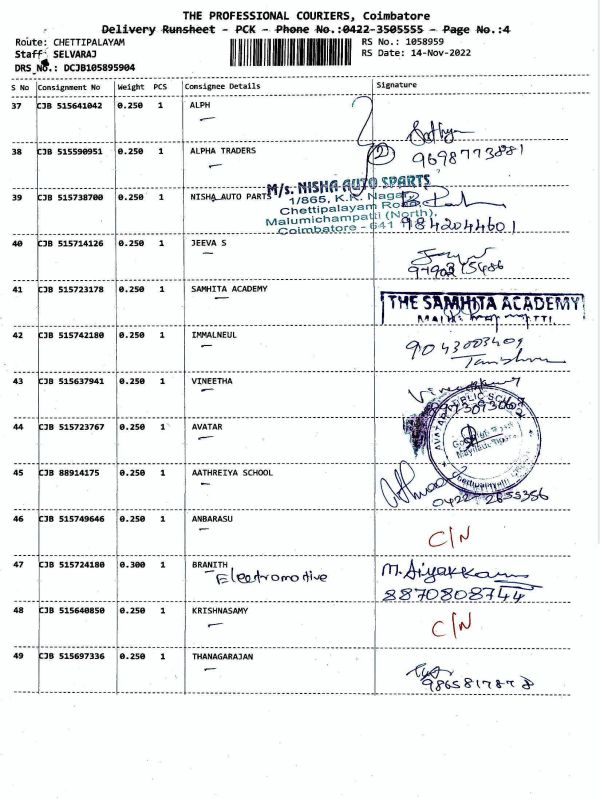 THE PROFESSIONAL COURIERS, Coimbatore
Delivery Runsheet - PCK - Phone No.:0422-3505555 - Page No.:4
Route: CHETTIPALAYAM RS No.: 1058959
Staff: SELVARAJ RS Date: 14-Nov-2022
DRS No.: DCJB105895904
S No Consignment No Weight PCS Consignee Details Signature
37 CJB 515641042 0.250 1 ALPH
38 CJB 515590951 0.250 1 ALPHA TRADERS 2 9698773881
39 CJB 515738700 0.250 1 NISHA AUTO PARTS
M/s. NISHA AUTO SPARTS
1/865, K.R. Nagar,
Chettipalayam Road,
Malumichampatti (North),
Coimbatore - 641
9842044601
40 CJB 515714126 0.250 1 JEEVA S
41 CJB 515723178 0.250 1 SAMHITA ACADEMY
THE SAMHITA ACADEMY
42 CJB 515742180 0.250 1 IMMALNEUL 9043003409
43 CJB 515637941 0.250 1 VINEETHA
44 CJB 515723767 0.250 1 AVATAR
AVATAR PUBLIC SCHOOL
45 CJB 88914175 0.250 1 AATHREIYA SCHOOL
0422 2655356
46 CJB 515749646 0.250 1 ANBARASU C/N
47 CJB 515724180 0.300 1 BRANITH
Electromotive M. Aiyakkannu
8870808744
48 CJB 515640850 0.250 1 KRISHNASAMY C/N
49 CJB 515697336 0.250 1 THANAGARAJAN
9865817878